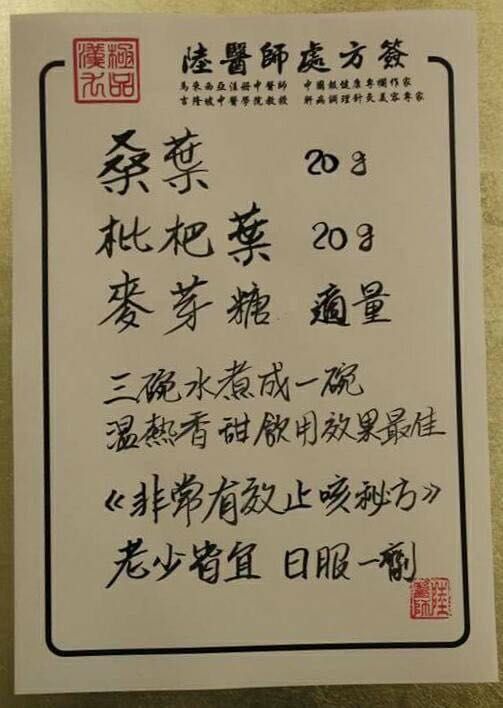 極品漢方
陸醫師處方簽
馬來西亞注册中醫師 中國報健康專欄作家
吉隆坡中醫學院教授 奸病調理針灸美容專家
桑葉 20g
枇杷葉 20g
麥芽糖 適量
三碗水煮成一碗
溫熱香甜飲用效果最佳
《非常有效止咳秘方》
老少皆宜 日服一劑
陸醫師